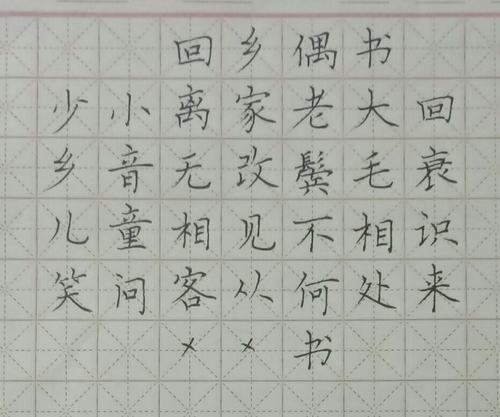 回乡偶书
少小离家老大回
乡音无改鬓毛衰
儿童相见不相识
笑问客从何处来
××书